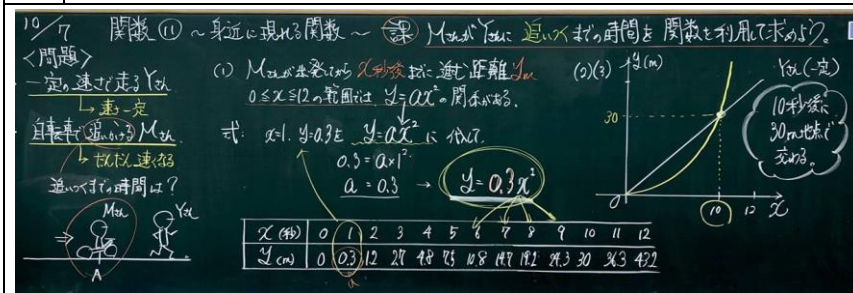 10/7 関数⑪ ~身近に現れる関数~ 課 MさんがYさんに追いつくまでの時間を関数を利用して求めよう。
<問題>
一定の速さで走るYさん
↳速さ一定
自転車で追いかけるMさん
↳だんだん速くなる
追いつくまでの時間は?
Mさん
Yさん
A
(1) Mさんが出発してから x秒後までに進む距離ym
0≦x≦12の範囲では y=ax²の関係がある。
式: x=1. y=0.3を y=ax² に代入して.
0.3=a×1².
a=0.3 → y=0.3x²
x(秒) 0 1 2 3 4 5 6 7 8 9 10 11 12
y(m) 0 0.3 1.2 2.7 4.8 7.5 10.8 14.7 19.2 24.3 30 36.3 43.2
a
(2)(3)
y(m)
Yさん(一定)
30
0
10
12
x
10秒後に
30m地点で
交わる。